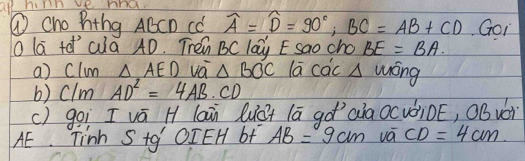 ập hình vẽ nhà.
① Cho hthg ABCD có Â = D̂ = 90°, BC = AB + CD. Gọi
O là tđ' của AD. Trên BC lấy E sao cho BE = BA.
a) C/m △ AED và △ BOC là các △ vuông
b) C/m AD² = 4AB.CD
c) gọi I và H lần lượt là gđ' của OC với DE, OB với
AE. Tính S tg' OIEH bt AB = 9cm và CD = 4cm.